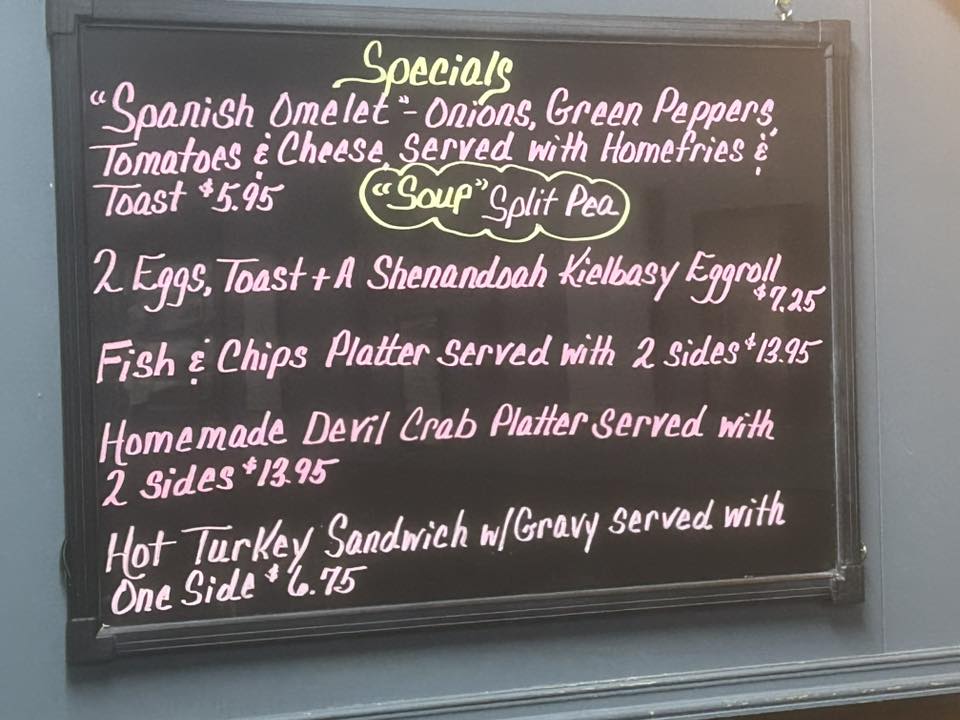 Specials
"Spanish Omelet" - Onions, Green Peppers,
Tomatoes & Cheese served with Homefries &
Toast $5.95
"Soup" Split Pea
2 Eggs, Toast + A Shenandoah Kielbasy Eggroll
$7.25
Fish & Chips Platter served with 2 sides $13.95
Homemade Devil Crab Platter served with
2 sides $13.95
Hot Turkey Sandwich w/Gravy served with
One Side $6.75